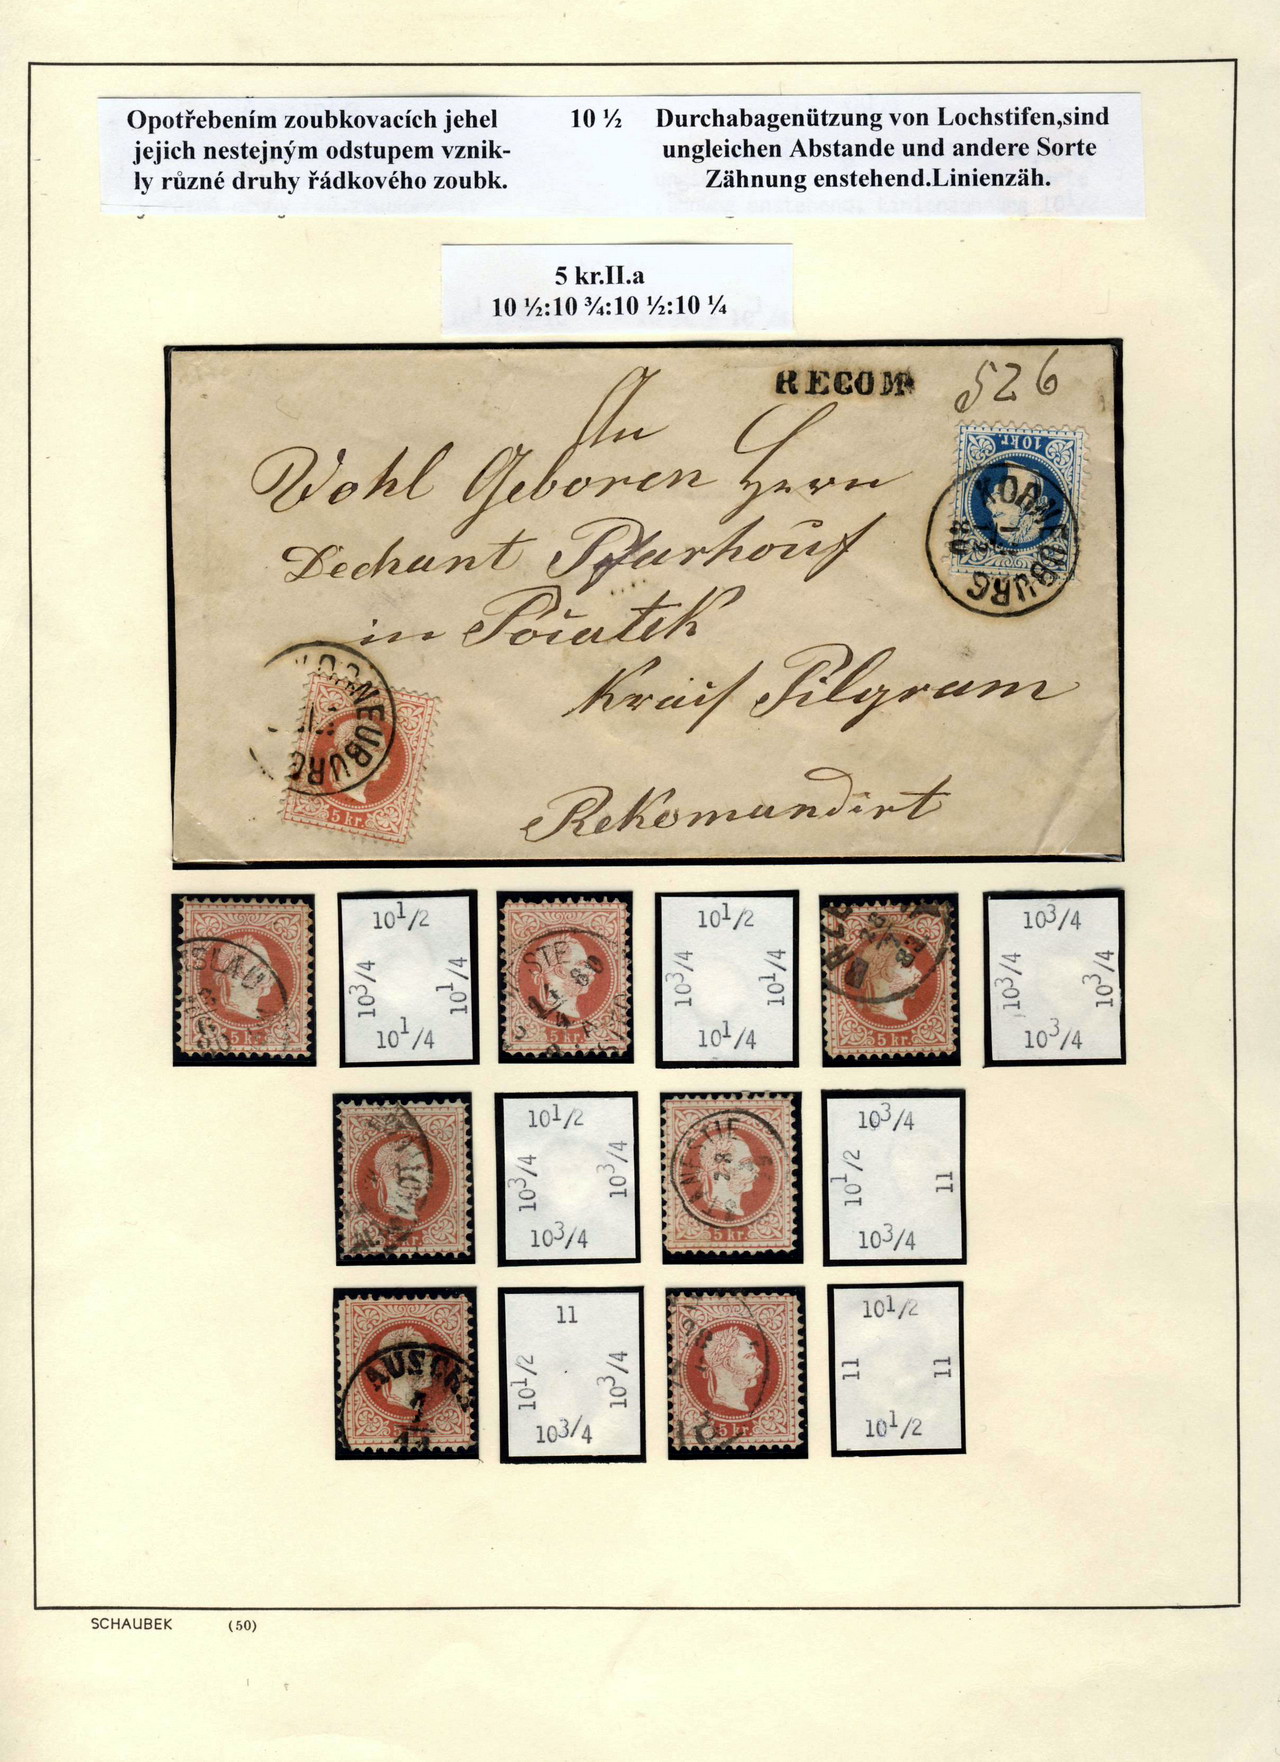 Opotřebením zoubkovacích jehel
jejich nestejným odstupem vznik-
ly různé druhy řádkového zoubk.
10 ½
Durchabagenützung von Lochstifen,sind
ungleichen Abstande und andere Sorte
Zähnung enstehend.Linienzäh.
5 kr.II.a
10 ½:10 ¾:10 ½:10 ¼
RECOM
526
10 KR.
KORNEUBURG
80
An
Wohl Geboren Herrn
Dechant Pfarhouf
in Počatek
Krais Pilgram
Rekomandirt
KORNEUBURG
5 kr.
5 kr.
10 1/2
10 3/4
10 1/4
10 1/4
80
5 kr.
10 1/2
10 3/4
10 1/4
10 1/4
5 kr.
10 3/4
10 3/4
10 3/4
10 3/4
5 kr.
10 1/2
10 3/4
10 3/4
10 3/4
5 kr.
10 3/4
10 1/2
11
10 3/4
AUSCHA
5 kr.
11
10 1/2
10 3/4
10 3/4
5 kr.
10 1/2
11
11
10 1/2
SCHAUBEK (50)